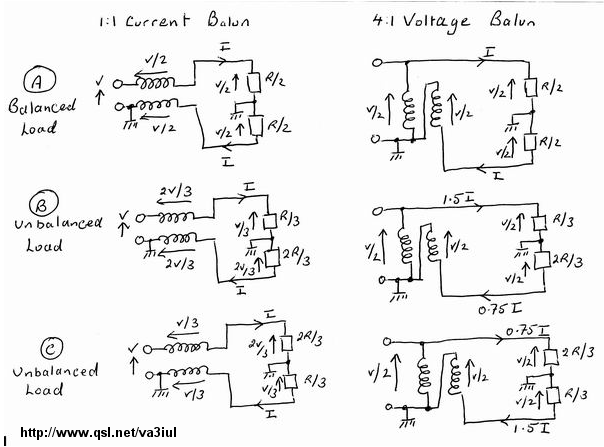 1:1 Current Balun
4:1 Voltage Balun
A
Balanced
Load
V
V/2
V/2
I
V/2
R/2
V/2
R/2
I
I
V/2
V/2
V/2
R/2
V/2
R/2
I
B
Unbalanced
Load
V
2V/3
2V/3
I
V/3
R/3
2V/3
2R/3
I
1.5I
V/2
V/2
V/2
R/3
V/2
2R/3
0.75I
C
Unbalanced
Load
V
V/3
V/3
I
2V/3
2R/3
V/3
R/3
I
0.75I
V/2
V/2
V/2
2R/3
V/2
R/3
1.5I
http://www.qsl.net/va3iul